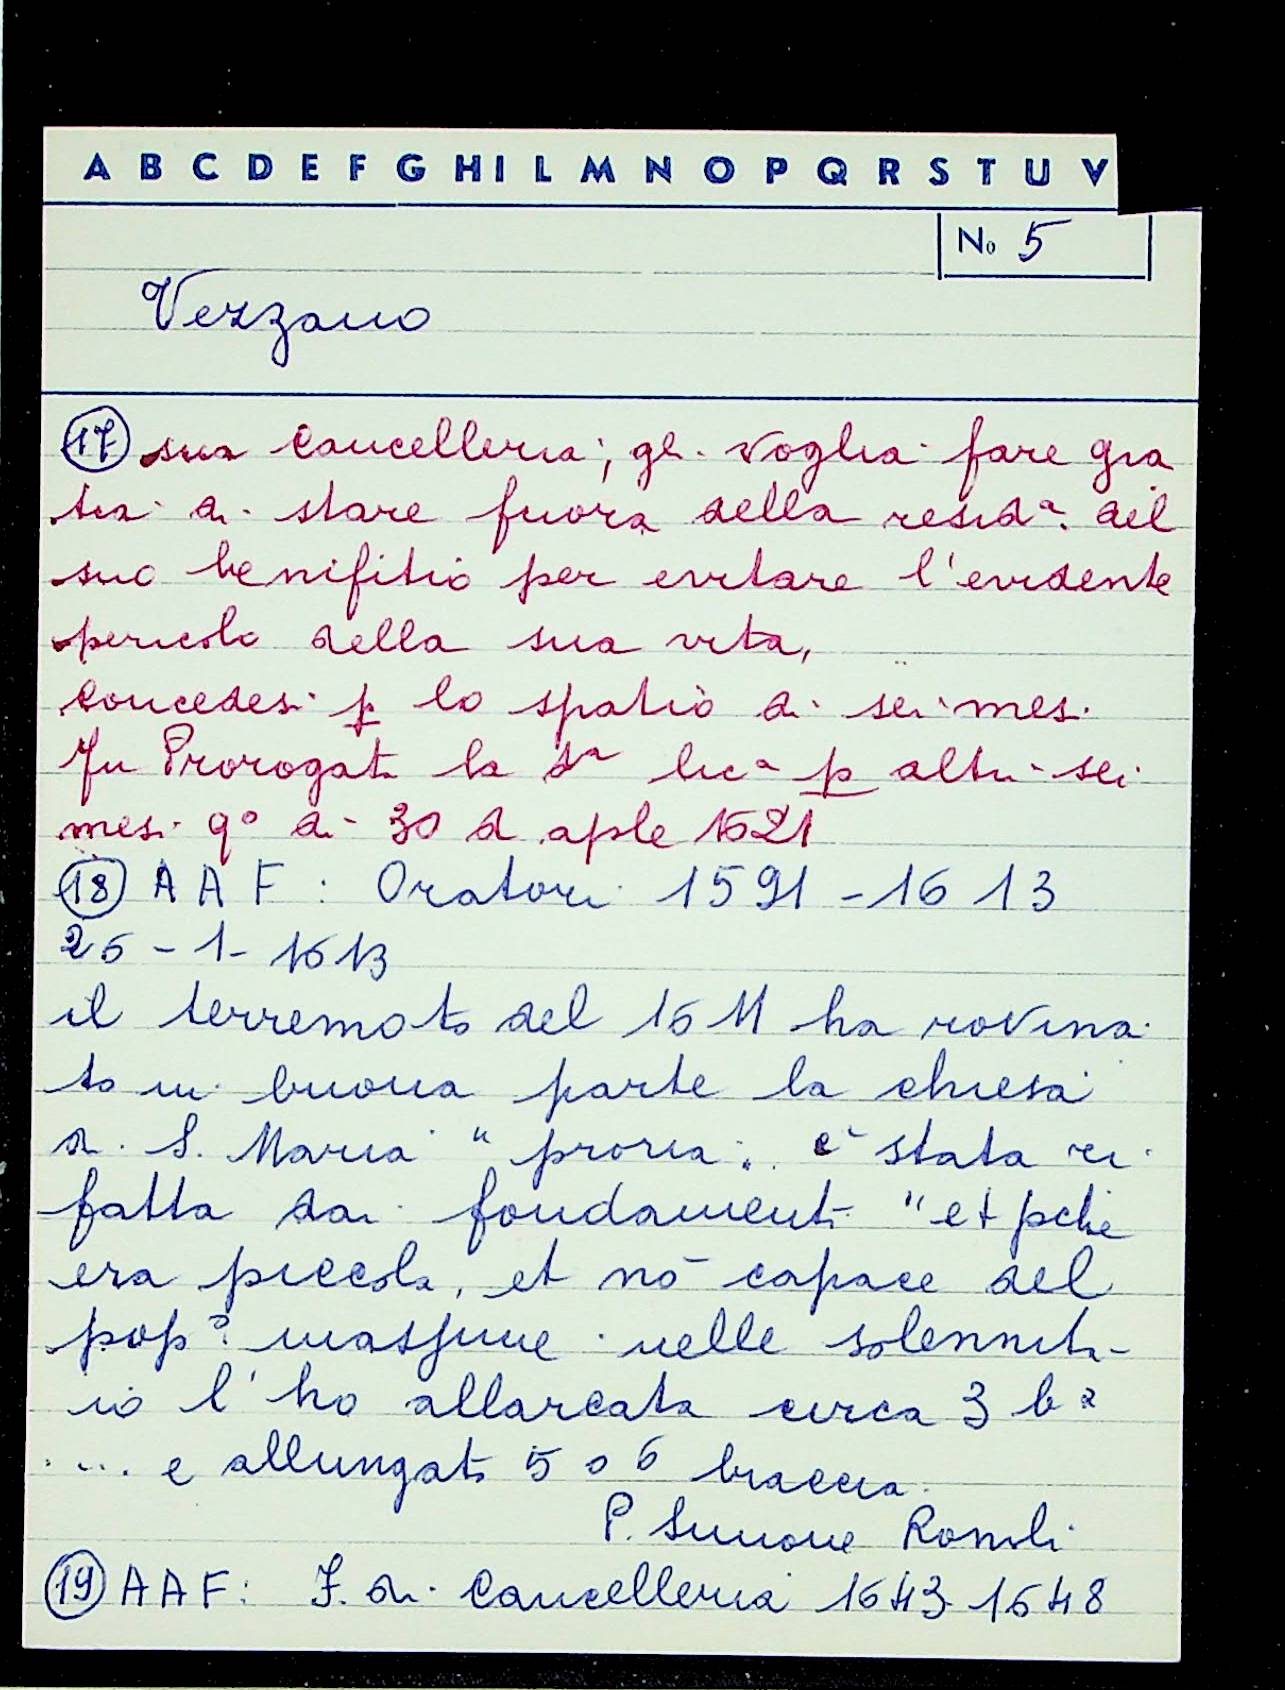 A B C D E F G H I L M N O P Q R S T U V
No 5
Vezzano
17 sua cancelleria; gli voglia fare gra
tia di stare fuora della resid.a del
suo benifitio per evitare l'evidente
pericolo della sua vita,
concedesi p lo spatio di sei mesi.
Fu Prorogata la d.a lic.a p altri sei
mesi q.o di 30 d aple 1621
18 AAF: Oratori 1591-1613
26-1-1613
il terremoto del 1611 ha rovina
to in buona parte la chiesa
di S. Maria "prioria". è stata ri
fatta dai fondamenti "et pchè
era piccola, et nō capace del
pop.o massime nelle solennità
io l'ho allarcata circa 3 b.a
.... e allungata 5 o 6 braccia.
P. Simone Romoli
19 AAF: F. di Cancelleria 1643-1648